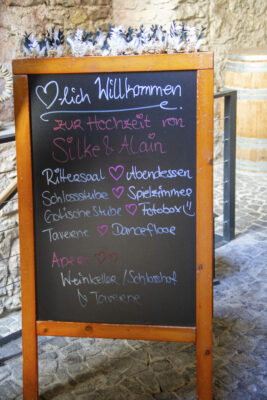 ♡lich Willkommen
zur Hochzeit von
Silke & Alain
Rittersaal ♡ Abendessen
Schlossstube ♡ Spielzimmer
Gotische Stube ♡ Fotobox!!
Taverne ♡ Dancefloor
Apero ♡♡
Weinkeller / Schlosshof
& Taverne